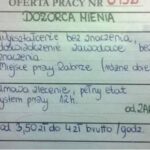 OFERTA PRACY NR
DOZORCA MIENIA
wykształcenie bez znaczenia,
doświadczenie zawodowe bez
znaczenia
Miejsce pracy Zabrze (różne
umowa zlecenie, pełny etat
system pracy 12h.
od
od 3,50zł do 4zł brutto/godz.